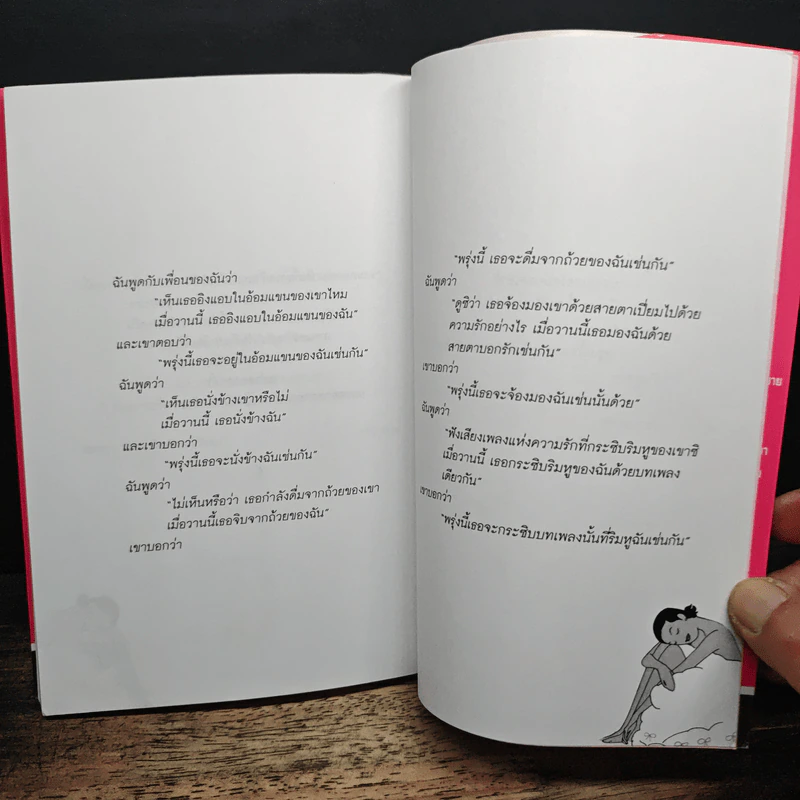 ฉันพูดกับเพื่อนของฉันว่า
“เห็นเธออิงแอบในอ้อมแขนของเขาไหม
เมื่อวานนี้ เธออิงแอบในอ้อมแขนของฉัน”
และเขาตอบว่า
“พรุ่งนี้เธอจะอยู่ในอ้อมแขนของฉันเช่นกัน”
ฉันพูดว่า
“เห็นเธอนั่งข้างเขาหรือไม่
เมื่อวานนี้ เธอนั่งข้างฉัน”
และเขาบอกว่า
“พรุ่งนี้เธอจะนั่งข้างฉันเช่นกัน”
ฉันพูดว่า
“ไม่เห็นหรือว่า เธอกำลังดื่มจากถ้วยของเขา
เมื่อวานนี้เธอจิบจากถ้วยของฉัน”
เขาบอกว่า
“พรุ่งนี้ เธอจะดื่มจากถ้วยของฉันเช่นกัน”
ฉันพูดว่า
“ดูซิว่า เธอจ้องมองเขาด้วยสายตาเปี่ยมไปด้วย
ความรักอย่างไร เมื่อวานนี้เธอมองฉันด้วย
สายตาบอกรักเช่นกัน”
เขาบอกว่า
“พรุ่งนี้เธอจะจ้องมองฉันเช่นนั้นด้วย”
ฉันพูดว่า
“ฟังเสียงเพลงแห่งความรักที่กระซิบริมหูของเขาซิ
เมื่อวานนี้ เธอกระซิบริมหูของฉันด้วยบทเพลง
เดียวกัน”
เขาบอกว่า
“พรุ่งนี้เธอจะกระซิบบทเพลงนั้นที่ริมหูฉันเช่นกัน”